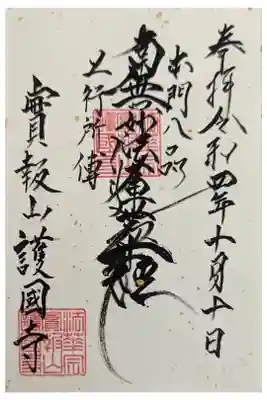 奉拝令和四年十月十日
本門八品
南無妙法蓮華経
上行所傳
實報山護國寺